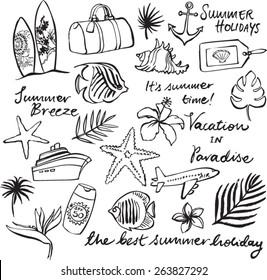 SUMMER
HOLIDAYS
It's summer
time!
Summer
Breeze
Vacation
IN
Paradise
the best summer holiday
shutterstock.com · 263827292